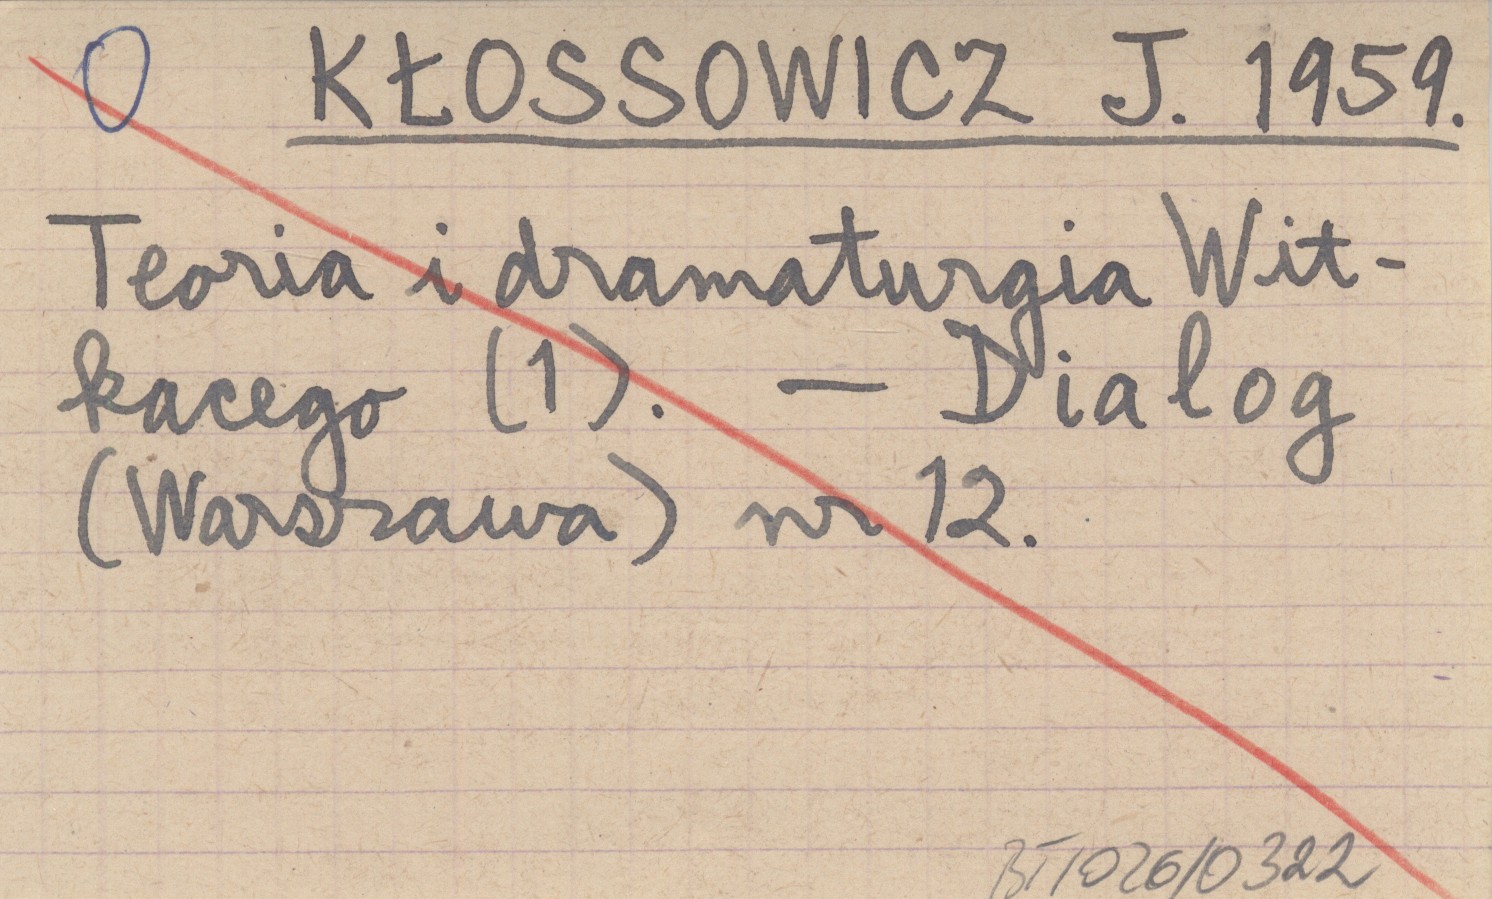 O KŁOSSOWICZ J. 1959.
Teoria i dramaturgia Wit-
kacego (1). — Dialog
(Warszawa) nr 12.
BT/026/0322